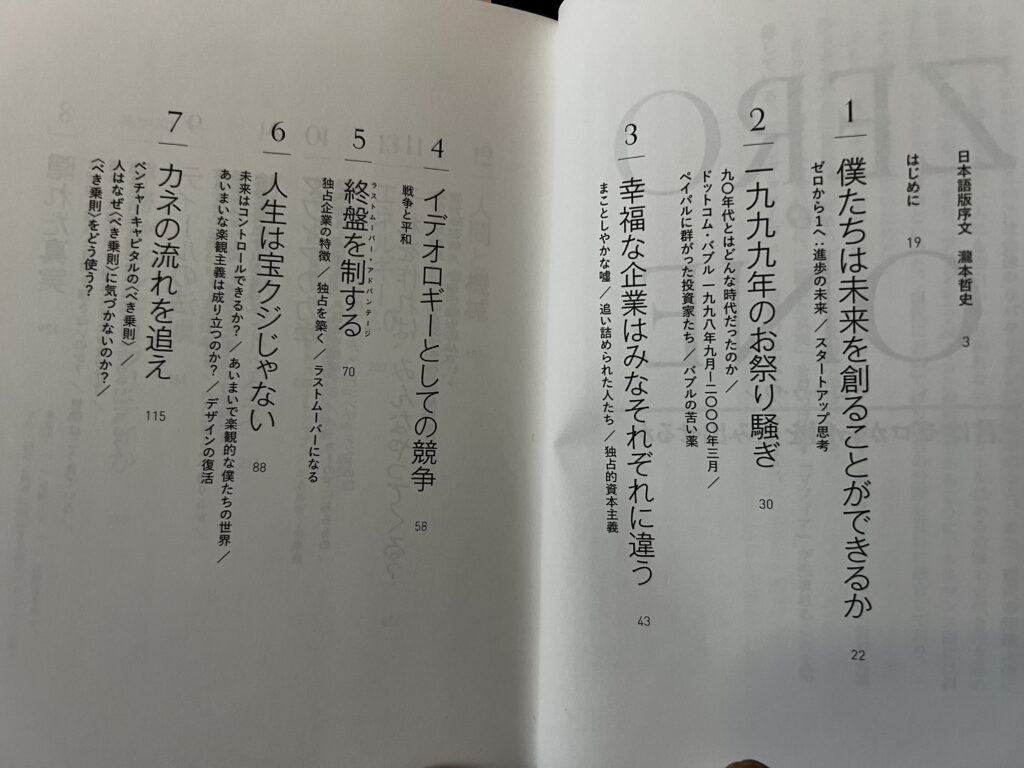 日本語版序文　瀧本哲史　3
はじめに　19
1　僕たちは未来を創ることができるか　22
ゼロから1へ：進歩の未来／スタートアップ思考
2　一九九九年のお祭り騒ぎ　30
九〇年代とはどんな時代だったのか／
ドットコム・バブル 一九九八年九月ー二〇〇〇年三月／
ペイパルに群がった投資家たち／バブルの苦い薬
3　幸福な企業はみなそれぞれに違う　43
まことしやかな嘘／追い詰められた人たち／独占的資本主義
4　イデオロギーとしての競争　58
戦争と平和
ラストムーバー・アドバンテージ
5　終盤を制する　70
独占企業の特徴／独占を築く／ラストムーバーになる
6　人生は宝クジじゃない　88
未来はコントロールできるか？／あいまいで楽観的な僕たちの世界／
あいまいな楽観主義は成り立つのか？／デザインの復活
7　カネの流れを追え　115
ベンチャーキャピタルの〈べき乗則〉／
人はなぜ〈べき乗則〉に気づかないのか？／
〈べき乗則〉をどう使う？